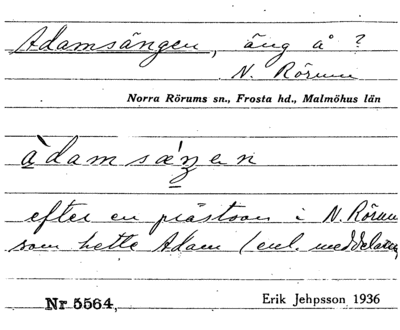 Adamsängen, äng å ?
N. Rörum
Norra Rörums sn., Frosta hd., Malmöhus län
efter en prästson i N. Rörum
som hette Adam (enl. meddelaren
Nr 5564,
Erik Jehpsson 1936